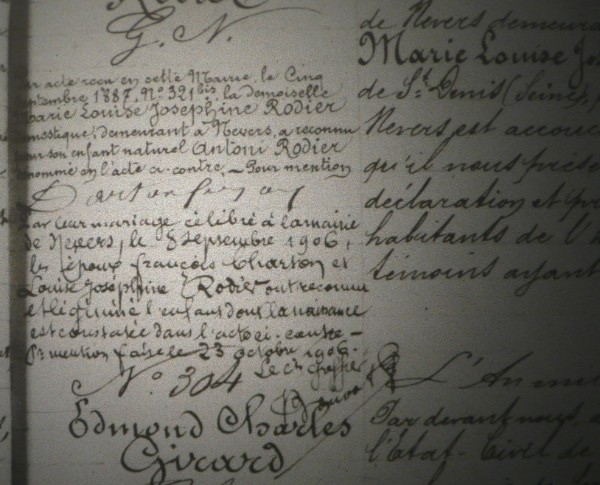 G. N.
acte reçu en cette Mairie, le Cinq
septembre 1887, N° 321 bis, la demoiselle
Marie Louise Joséphine Rodier
domestique, demeurant à Nevers, a reconnu
pour son enfant naturel Antoni Rodier
dénommé en l'acte ci-contre. — Pour mention
Par leur mariage célébré à la mairie
de Nevers, le 8 septembre 1906,
les époux François Charton et
Louise Joséphine Rodier ont reconnu
et légitimé l'enfant dont la naissance
est constatée dans l'acte ci-contre —
Pr mention faite le 23 octobre 1906.
Le Cis Greffier
N° 304
Edmond Charles
Girard
de Nevers demeura
Marie Louise Jos
de St Denis (Seine),
Nevers, est accouc
qu'il nous prése
déclaration et pr
habitants de l'h
témoins ayant
L'An mil
Par devant nous,
l'État-Civil de